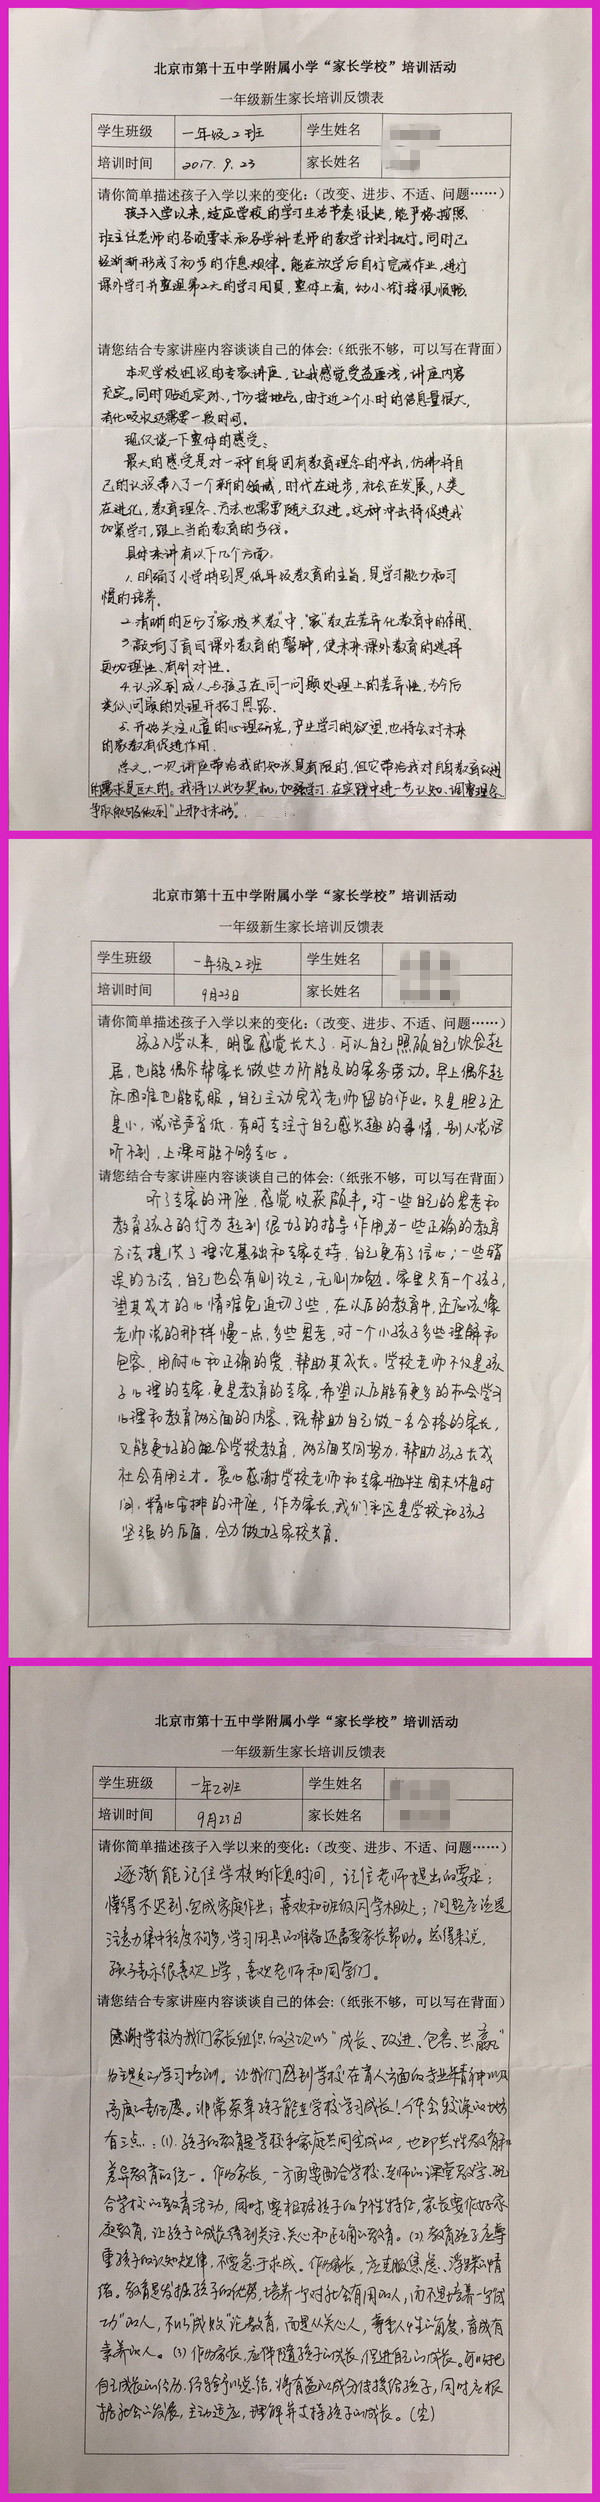 北京市第十五中学附属小学“家长学校”培训活动
一年级新生家长培训反馈表
学生班级 一年级2班 学生姓名
培训时间 2017.9.23 家长姓名
请你简单描述孩子入学以来的变化:（改变、进步、不适、问题……）
孩子入学以来，适应学校的学习生活节奏很快，能严格按照
班主任老师的各项要求和各学科老师的教学计划执行。同时已
经渐渐形成了初步的作息规律。能在放学后自行完成作业，进行
课外学习并整理第2天的学习用具，整体上看，幼小衔接很顺畅.
请您结合专家讲座内容谈谈自己的体会:（纸张不够，可以写在背面）
本次学校组织的专家讲座，让我感觉受益匪浅，讲座内容
充实。同时贴近实际、十分接地气，由于近2个小时的信息量很大，
消化吸收还需要一段时间。
现仅谈一下整体的感受：
最大的感受是对一种自身固有教育理念的冲击，仿佛将自
己的认识带入了一个新的领域，时代在进步，社会在发展，人类
在进化，教育理念、方法也需要随之改进。这种冲击将促进我
加紧学习，跟上当前教育的步伐。
具体来讲有以下几个方面：
1.明确了小学特别是低年级教育的主旨，是学习能力和习
惯的培养。
2.清晰的区分了“家校共教”中，“家”教在差异化教育中的作用.
3.敲响了盲目课外教育的警钟，使未来课外教育的选择
更加理性、有针对性。
4.认识到成人与孩子在同一问题处理上的差异性，为今后
类似问题的处理开拓了思路.
5.开始关注儿童的心理研究，产生学习的欲望，也将会对未来
的家教有促进作用.
总之，一次讲座带给我的知识是有限的，但它带给我对自身教育改进
的需求是巨大的。我将以此为契机，加强学习，在实践中进一步认知、调整理念
争取能够做到“止邪于未形”.
北京市第十五中学附属小学“家长学校”培训活动
一年级新生家长培训反馈表
学生班级 一年级2班 学生姓名
培训时间 9月23日 家长姓名
请你简单描述孩子入学以来的变化:（改变、进步、不适、问题……）
孩子入学以来，明显感觉长大了，可以自己照顾自己饮食起
居，也能偶尔帮家长做些力所能及的家务劳动。早上偶尔起
床困难也能克服，自己主动完成老师留的作业。只是胆子还
是小，说话声音低，有时专注于自己感兴趣的事情，别人说话
听不到，上课可能不够专心。
请您结合专家讲座内容谈谈自己的体会:（纸张不够，可以写在背面）
听了专家的讲座，感觉收获颇丰，对一些自己的思考和
教育孩子的行为起到很好的指导作用，为一些正确的教育
方法提供了理论基础和专家支持，自己更有了信心；一些错
误的方法，自己也会有则改之，无则加勉。家里只有一个孩子，
望其成才的心情难免迫切了些，在以后的教育中，还应该像
老师说的那样慢一点，多些思考，对一个小孩子多些理解和
包容，用耐心和正确的爱，帮助其成长。学校老师不仅是孩
子心理的专家，更是教育的专家，希望以后能有更多的机会学习
心理和教育两方面的内容，既帮助自己做一名合格的家长，
又能更好的配合学校教育，两方面共同努力，帮助孩子长成
社会有用之才。衷心感谢学校老师和专家牺牲周末休息时
间，精心安排的讲座，作为家长，我们永远是学校和孩子
坚强的后盾，全力做好家校共育.
北京市第十五中学附属小学“家长学校”培训活动
一年级新生家长培训反馈表
学生班级 一年2班 学生姓名
培训时间 9月23日 家长姓名
请你简单描述孩子入学以来的变化:（改变、进步、不适、问题……）
逐渐能记住学校的作息时间，记住老师提出的要求；
懂得不迟到，完成家庭作业；喜欢和班级同学相处；问题应该是
注意力集中程度不够多，学习用具的准备还需要家长帮助。总得来说，
孩子表示很喜欢上学，喜欢老师和同学们。
请您结合专家讲座内容谈谈自己的体会:（纸张不够，可以写在背面）
感谢学校为我们家长组织的这次以“成长、改进、包容、共赢”
为主题的学习培训。让我们感到学校在育人方面的专业精神以及
高度的责任感。非常荣幸孩子能在学校学习成长！体会较深的地方
有三点：(1).孩子的教育是学校和家庭共同完成的，也即共性教育和
差异教育的统一。作为家长，一方面要配合学校、老师的课堂教学、配
合学校的教育活动，同时，要根据孩子的个性特征，家长要作好家
庭教育，让孩子的成长得到关注、关心和正确的教育。(2)教育孩子应尊
重孩子的认知规律，不要急于求成。作为家长，应克服焦虑、浮躁的情
绪。教育是发掘孩子的优势，培养一个对社会有用的人，而不是培养一个“成
功”的人，不以“成败”论教育，而是从关心人，尊重人生的角度，育成有
素养的人。(3)作为家长，应伴随孩子的成长，促进自己的成长。可以把
自己成长的经历，经验予以总结，将有益的成分传接给孩子，同时应根
据社会的发展，主动适应，理解并支持孩子的成长。(完)